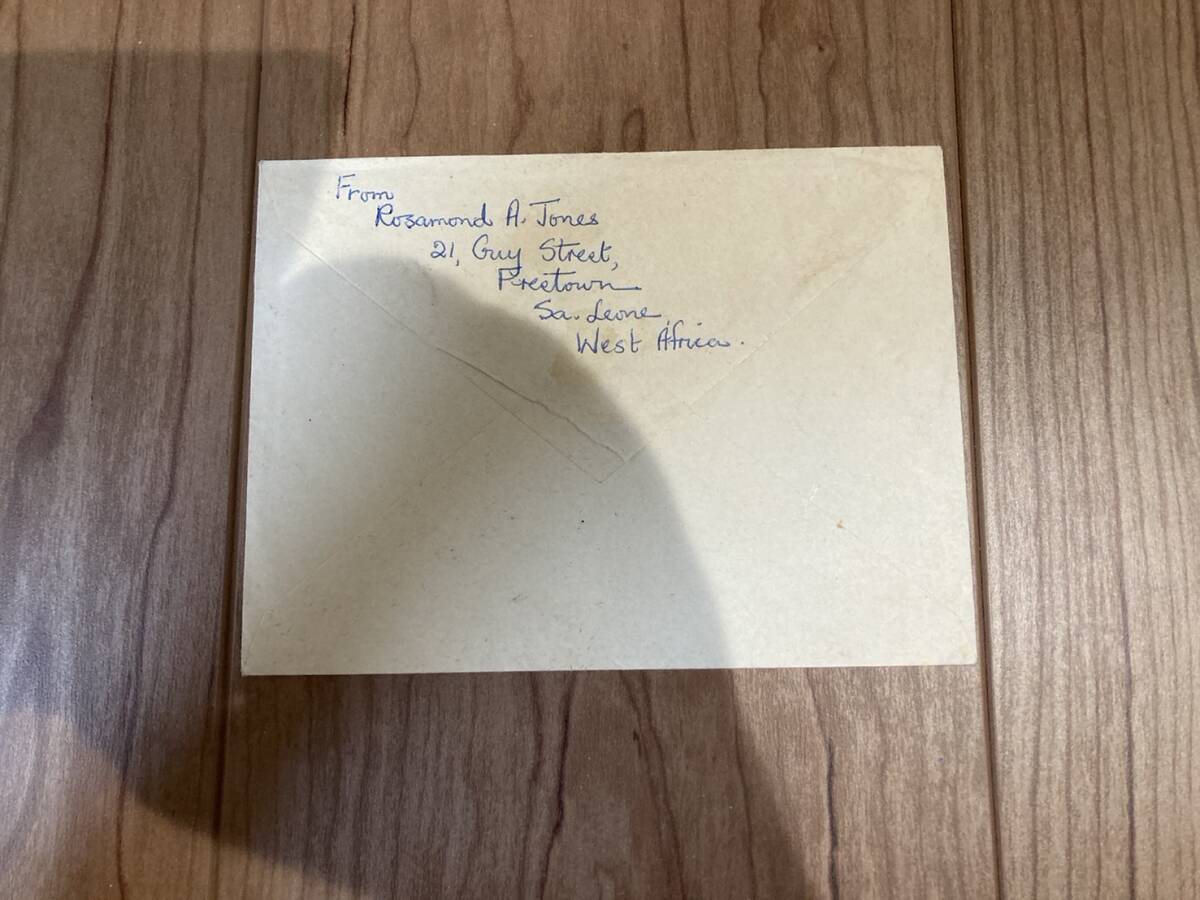 From
Rosamond A. Jones
21, Guy Street,
Freetown
Sa. Leone,
West Africa.